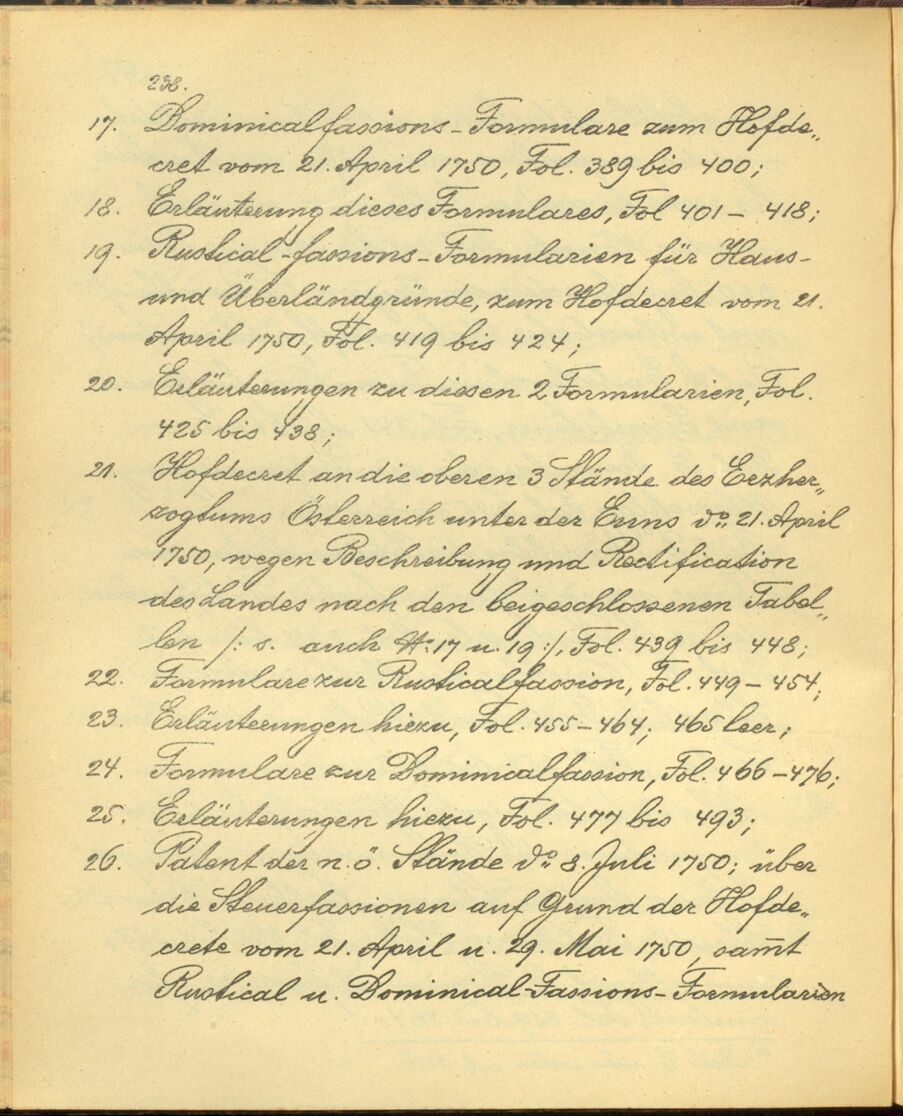 238.
17. Dominicalfassions-Formulare zum Hofde„
cret vom 21. April 1750, Fol. 389 bis 400;
18. Erläuterung dieses Formulares, Fol 401 – 418;
19. Rustical-fassions-Formularien für Haus-
und Überländgründe, zum Hofdecret vom 21.
April 1750, Fol. 419 bis 424;
20. Erläuterungen zu diesen 2 Formularien, Fol.
425 bis 438;
21. Hofdecret an die oberen 3 Stände des Erzher„
zogtums Österreich unter der Enns do: 21. April
1750, wegen Beschreibung und Rectification
des Landes nach den beigeschlossenen Tabel„
len /: s. auch No: 17 u. 19 :/, Fol. 439 bis 448;
22. Formulare zur Rusticalfassion, Fol. 449 – 454;
23. Erläuterungen hiezu, Fol. 455 – 464; 465 leer;
24. Formulare zur Dominicalfassion, Fol. 466 – 476;
25. Erläuterungen hiezu, Fol. 477 bis 493;
26. Patent der n. ö. Stände do: 8. Juli 1750; über
die Steuerfassionen auf Grund der Hofde„
crete vom 21. April u. 29. Mai 1750, sam̅t
Rustical u. Dominical-Fassions-Formularien